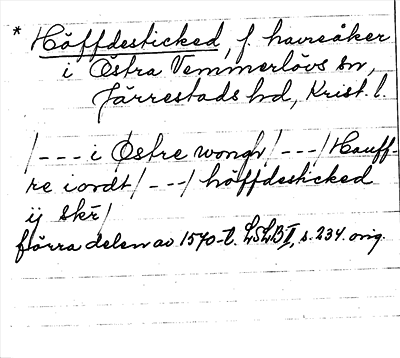 * Höffdesticked, f. havreåker
i Östra Vemmerlövs sn,
Järrestads hd, Krist. l.
/--- i Østre wongh/---/Hauff-
re iordt/---/höffdesticked
ij skr̄/
förra delen av 1570-t. LSLB II, s. 234. orig.